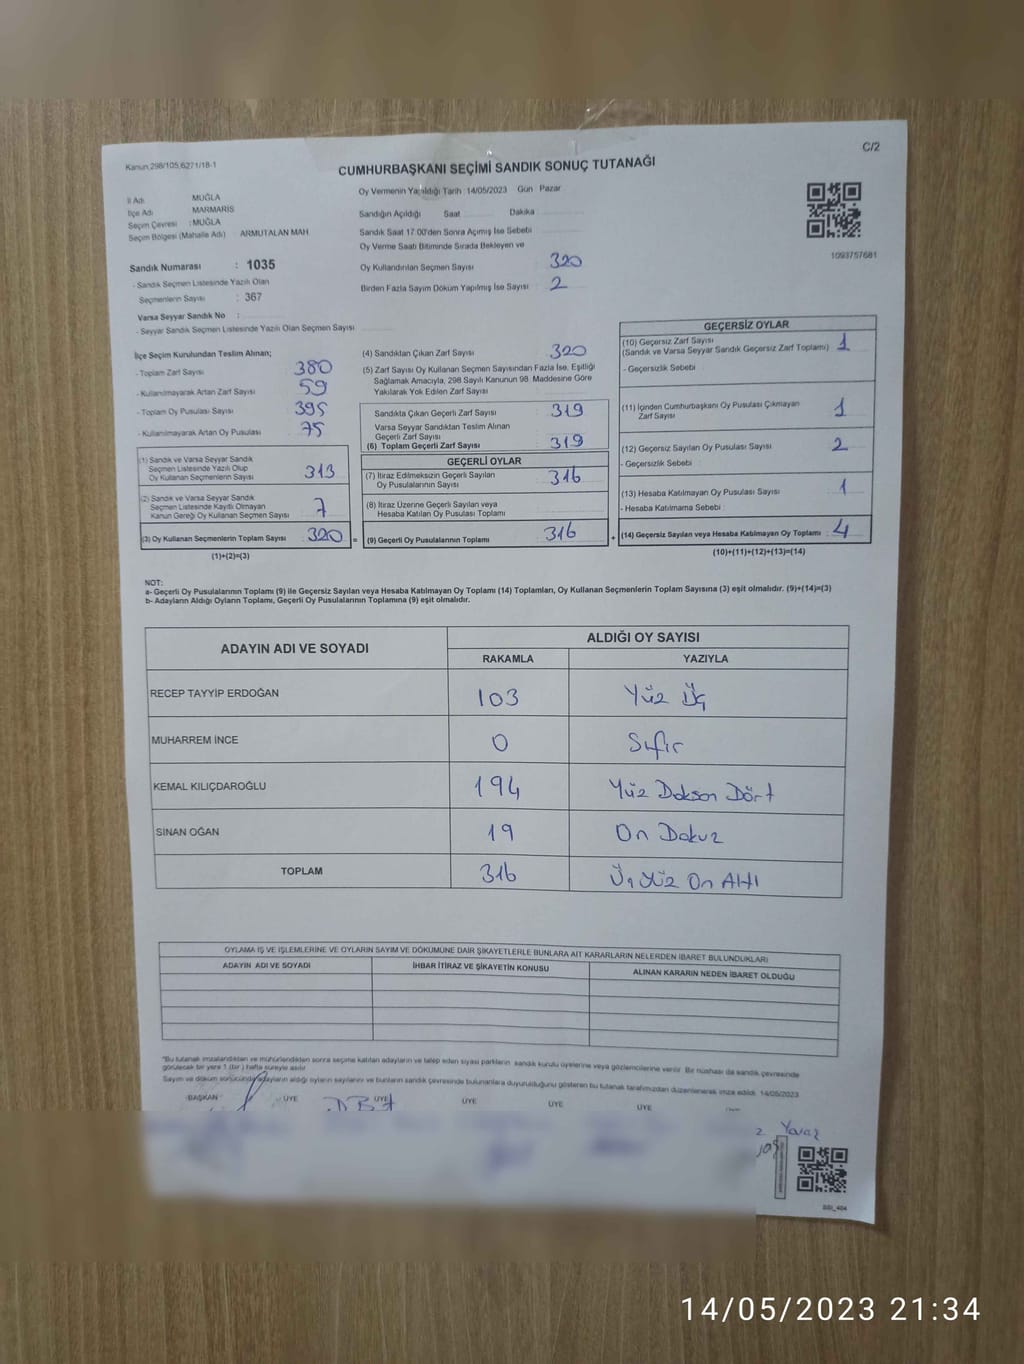 Kanun 298/105,6271/18-1
C/2
CUMHURBAŞKANI SEÇİMİ SANDIK SONUÇ TUTANAĞI
İl Adı MUĞLA
İlçe Adı MARMARİS
Seçim Çevresi : MUĞLA
Seçim Bölgesi (Mahalle Adı) : ARMUTALAN MAH
Sandık Numarası : 1035
- Sandık Seçmen Listesinde Yazılı Olan
Seçmenlerin Sayısı : 367
Varsa Seyyar Sandık No :
- Seyyar Sandık Seçmen Listesinde Yazılı Olan Seçmen Sayısı
Oy Vermenin Yapıldığı Tarih : 14/05/2023 Gün Pazar
Sandığın Açıldığı Saat Dakika
Sandık Saat 17:00'den Sonra Açılmış İse Sebebi
Oy Verme Saati Bitiminde Sırada Bekleyen ve
Oy Kullandırılan Seçmen Sayısı 320
Birden Fazla Sayım Döküm Yapılmış İse Sayısı 2
1093757681
İlçe Seçim Kurulundan Teslim Alınan;
- Toplam Zarf Sayısı 380
- Kullanılmayarak Artan Zarf Sayısı 59
- Toplam Oy Pusulası Sayısı 395
- Kullanılmayarak Artan Oy Pusulası 75
(1) Sandık ve Varsa Seyyar Sandık
Seçmen Listesinde Yazılı Olup
Oy Kullanan Seçmenlerin Sayısı 313
(2) Sandık ve Varsa Seyyar Sandık
Seçmen Listesinde Kayıtlı Olmayan
Kanun Gereği Oy Kullanan Seçmen Sayısı 7
(3) Oy Kullanan Seçmenlerin Toplam Sayısı 320 =
(1)+(2)=(3)
(4) Sandıktan Çıkan Zarf Sayısı 320
(5) Zarf Sayısı Oy Kullanan Seçmen Sayısından Fazla İse, Eşitliği
Sağlamak Amacıyla, 298 Sayılı Kanunun 98. Maddesine Göre
Yakılarak Yok Edilen Zarf Sayısı
Sandıkta Çıkan Geçerli Zarf Sayısı 319
Varsa Seyyar Sandıktan Teslim Alınan
Geçerli Zarf Sayısı
(6) Toplam Geçerli Zarf Sayısı 319
GEÇERLİ OYLAR
(7) İtiraz Edilmeksizin Geçerli Sayılan
Oy Pusulalarının Sayısı 316
(8) İtiraz Üzerine Geçerli Sayılan veya
Hesaba Katılan Oy Pusulası Toplamı
(9) Geçerli Oy Pusulalarının Toplamı 316 +
GEÇERSİZ OYLAR
(10) Geçersiz Zarf Sayısı
(Sandık ve Varsa Seyyar Sandık Geçersiz Zarf Toplamı) 1
- Geçersizlik Sebebi
(11) İçinden Cumhurbaşkanı Oy Pusulası Çıkmayan
Zarf Sayısı 1
(12) Geçersiz Sayılan Oy Pusulası Sayısı 2
- Geçersizlik Sebebi :
(13) Hesaba Katılmayan Oy Pusulası Sayısı 1
- Hesaba Katılmama Sebebi :
(14) Geçersiz Sayılan veya Hesaba Katılmayan Oy Toplamı : 4
(10)+(11)+(12)+(13)=(14)
NOT:
a- Geçerli Oy Pusulalarının Toplamı (9) ile Geçersiz Sayılan veya Hesaba Katılmayan Oy Toplamı (14) Toplamları, Oy Kullanan Seçmenlerin Toplam Sayısına (3) eşit olmalıdır. (9)+(14)=(3)
b- Adayların Aldığı Oyların Toplamı, Geçerli Oy Pusulalarının Toplamına (9) eşit olmalıdır.
ADAYIN ADI VE SOYADI ALDIĞI OY SAYISI
RAKAMLA YAZIYLA
RECEP TAYYİP ERDOĞAN 103 Yüz Üç
MUHARREM İNCE 0 Sıfır
KEMAL KILIÇDAROĞLU 194 Yüz Doksan Dört
SİNAN OĞAN 19 On Dokuz
TOPLAM 316 Üç Yüz On Altı
OYLAMA İŞ VE İŞLEMLERİNE VE OYLARIN SAYIM VE DÖKÜMÜNE DAİR ŞİKAYETLERLE BUNLARA AİT KARARLARIN NELERDEN İBARET BULUNDUKLARI
ADAYIN ADI VE SOYADI İHBAR İTİRAZ VE ŞİKAYETİN KONUSU ALINAN KARARIN NEDEN İBARET OLDUĞU
*Bu tutanak imzalandıktan ve mühürlendikten sonra seçime katılan adayların ve talep eden siyasi partilerin sandık kurulu üyelerine veya gözlemcilerine verilir. Bir nüshası da sandık çevresinde
görülecek bir yere 1 (bir) hafta süreyle asılır.
Sayım ve döküm sonucunda adayların aldığı oyların sayılarını ve bunların sandık çevresinde bulunanlara duyurulduğunu gösteren bu tutanak tarafımızdan düzenlenerek imza edildi. 14/05/2023
BAŞKAN ÜYE ÜYE ÜYE ÜYE ÜYE
Yavaş
14/05/2023 21:34